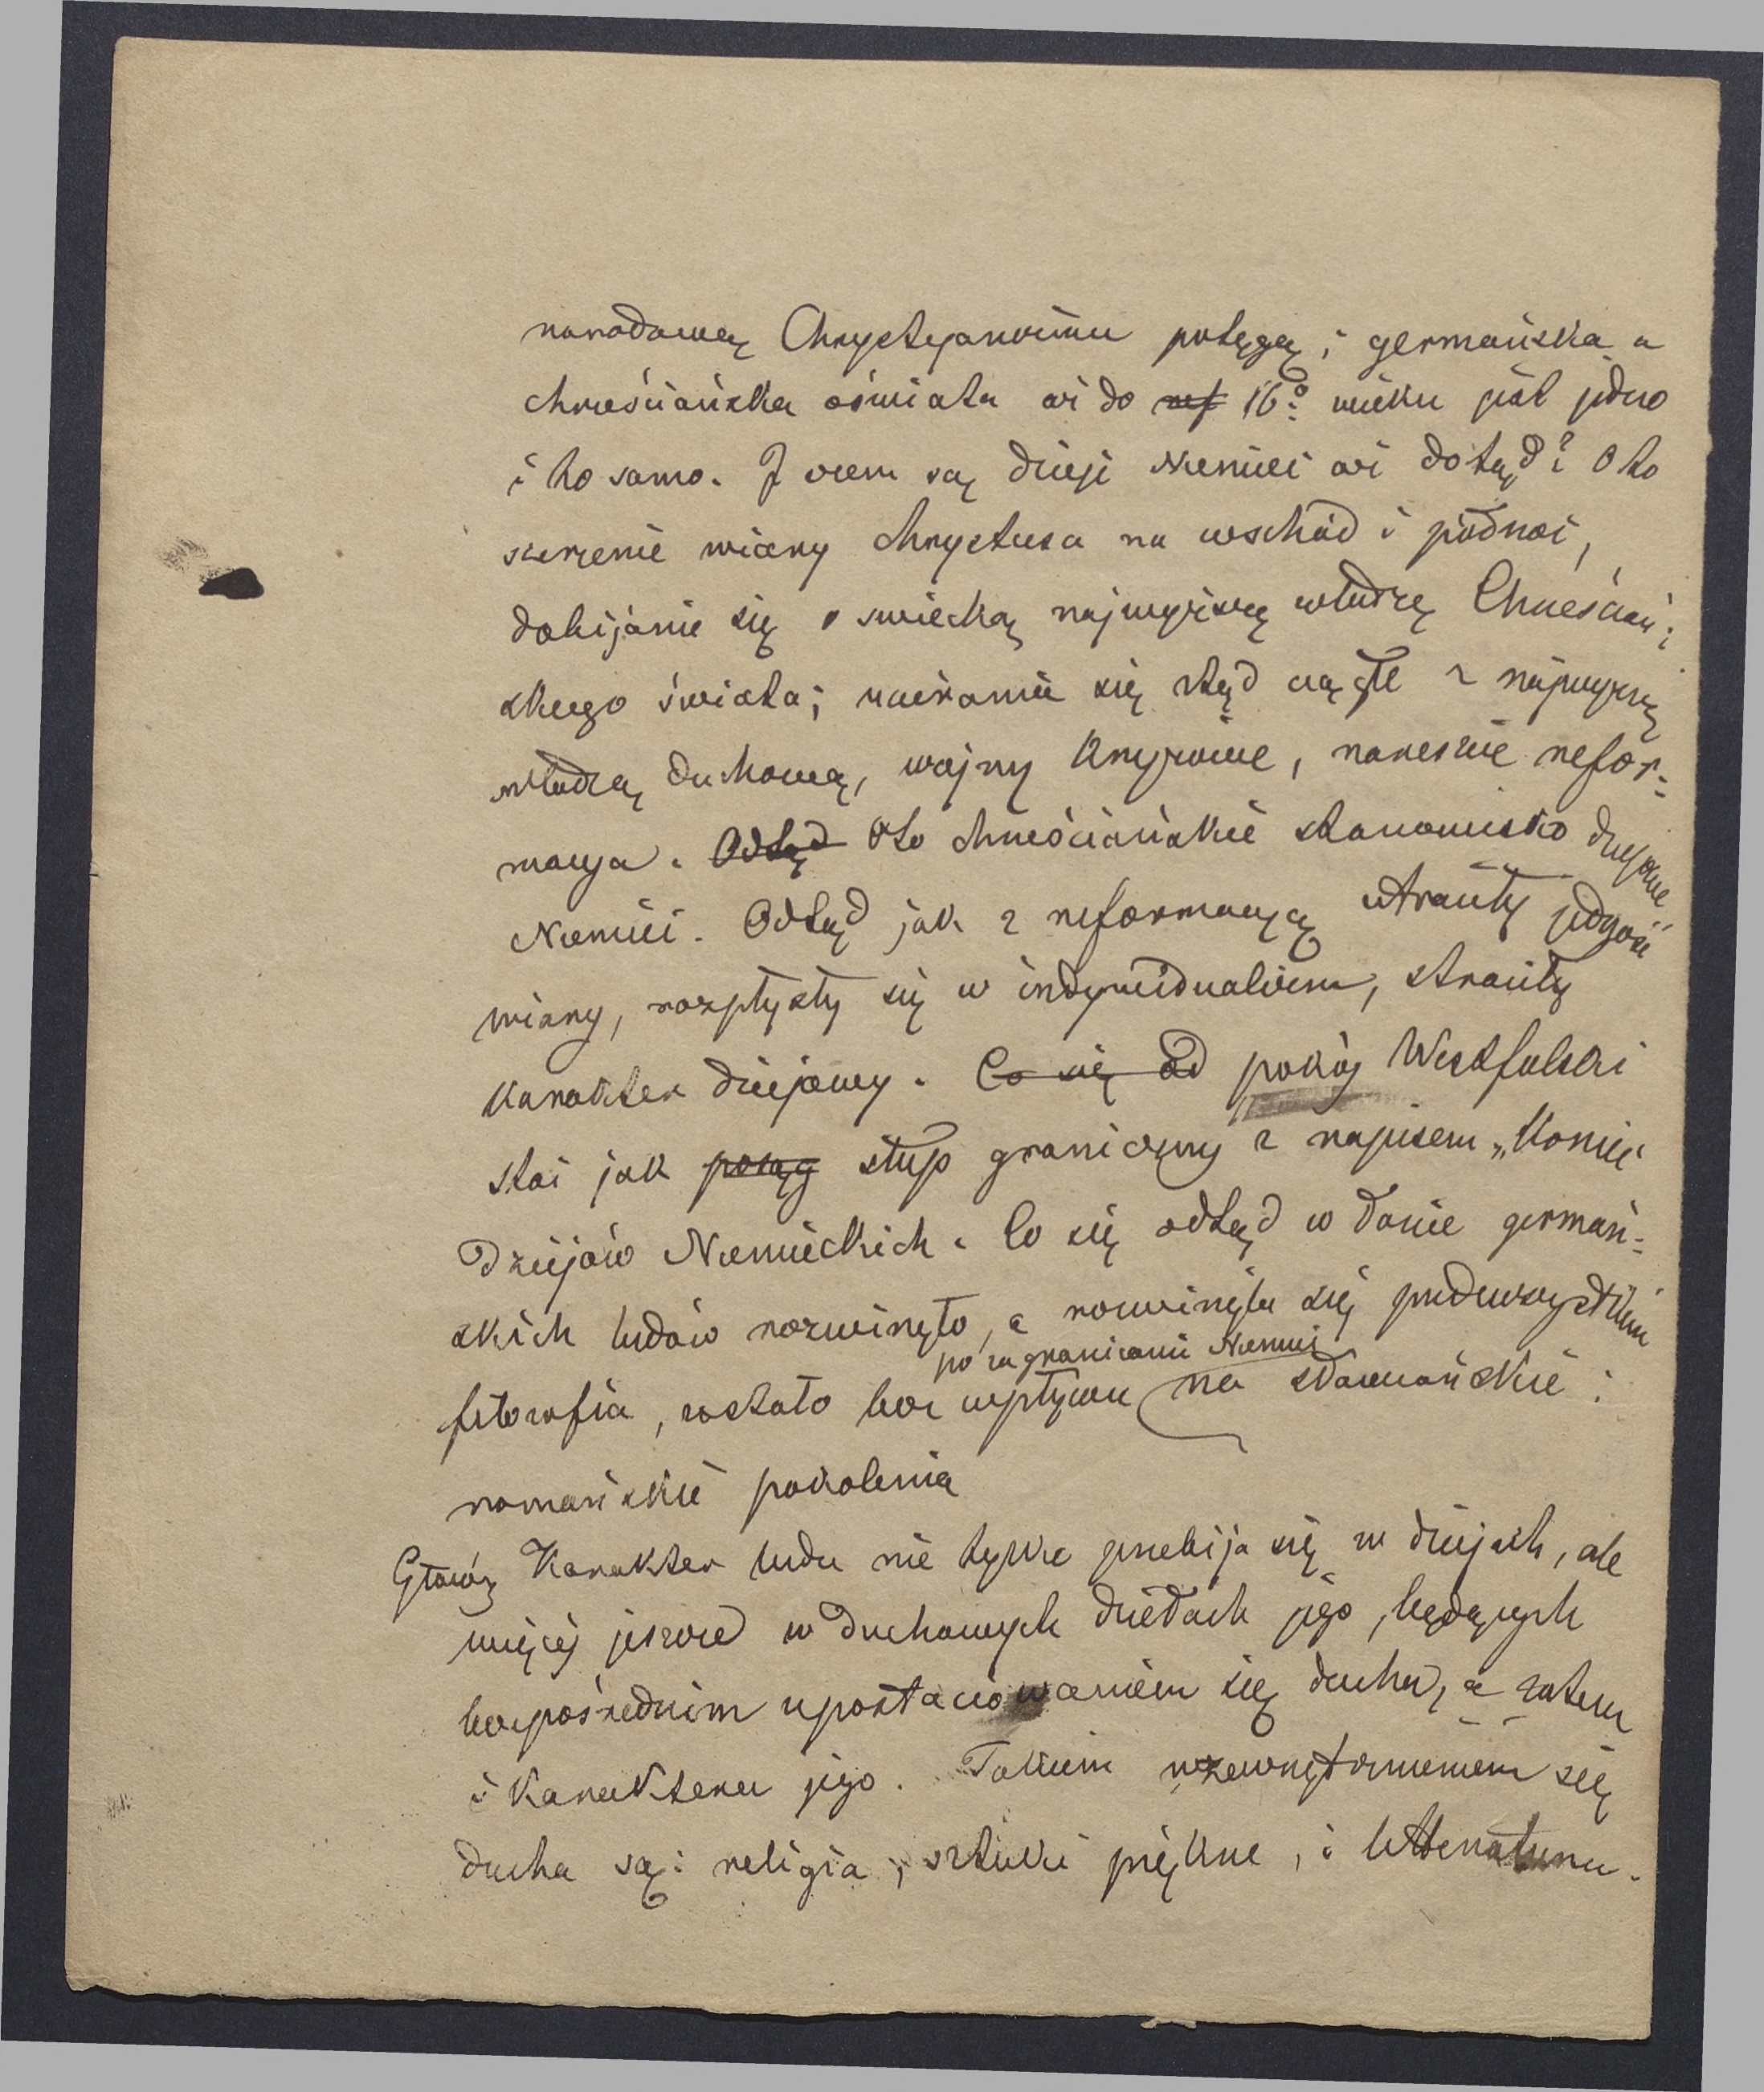 narodową Chrystyanizmu potęgą; germańska a
chrześciańska oświata aż do ref 16º: wieku jest jedno
i to samo. I czem są dzieje Niemiec aż dotąd? Oto
szerzenie wiary Chrystusa na wschód i północ,
dobijanie się o swiecką najwyższą władzę Chrześciań:
skiego świata; ucieranie się ztąd ciągłe z najwyższą
władzą duchową, wojny krzyżowe, nareszcie refor:
macya. Odtąd Oto chrześciańskie stanowisko dziejowe
Niemiec. Odtąd jak z reformacyą straciły jedność
wiary, rozpłysły się w indywidualizm, straciły
karakter dziejowy. Co się od pokój Westfalski
stoi jak posąg słup graniczny z napisem „Koniec
Dziejów Niemieckich. Co się odtąd w łonie germań:
skich ludów rozwinęło, a rozwinęła się przedewszystkiem
po za granicami Niemiec
filozofia, zostało bez wpływu na sławiańskie i
romańskie pokolenia
Główny Karakter ludu nie tylko przebija się w dziejach, ale
więcej jeszcze w duchowych dziełach jego, będących
bezpośrednim upostaciowaniem się ducha, a zatem
i karakteru jego. Takiem uzewnętrznieniem się
ducha są: religia, sztuki piękne, i litteratura.